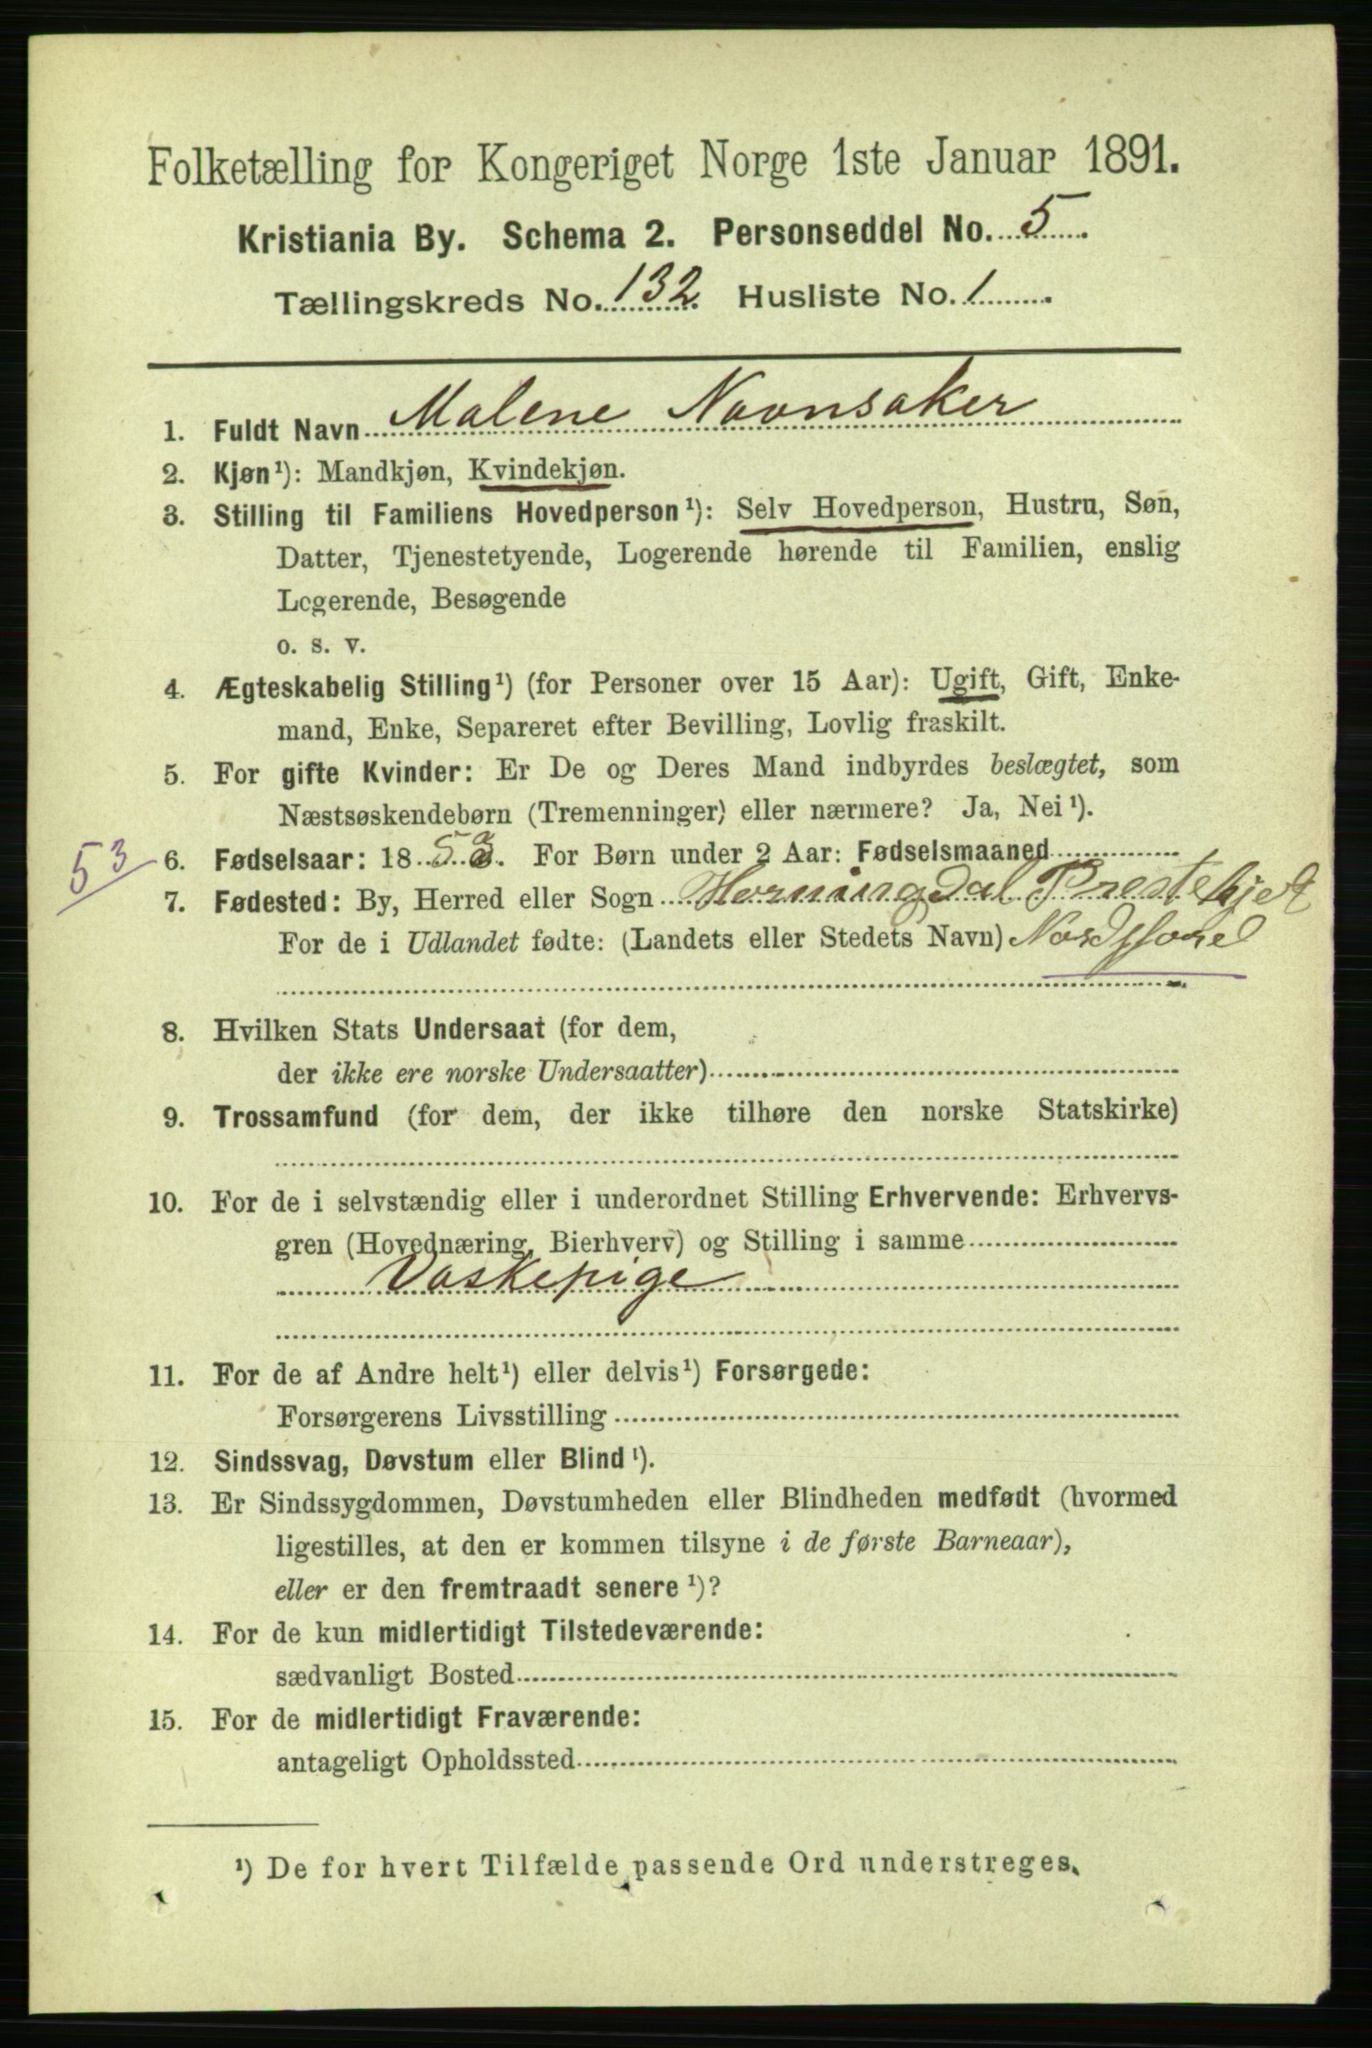 Folketælling for Kongeriget Norge 1ste Januar 1891.
Kristiania By. Schema 2. Personseddel No. 5
Tællingskreds No. 132 Husliste No. 1
1. Fuldt Navn Malene Navnsaker
2. Kjøn¹): Mandkjøn, Kvindekjøn.
3. Stilling til Familiens Hovedperson¹): Selv Hovedperson, Hustru, Søn,
Datter, Tjenestetyende, Logerende hørende til Familien, enslig
Logerende, Besøgende
o. s. v.
4. Ægteskabelig Stilling¹) (for Personer over 15 Aar): Ugift, Gift, Enke-
mand, Enke, Separeret efter Bevilling, Lovlig fraskilt.
5. For gifte Kvinder: Er De og Deres Mand indbyrdes beslægtet, som
Næstsøskendebørn (Tremenninger) eller nærmere? Ja, Nei¹).
53
6. Fødselsaar: 1853. For Børn under 2 Aar: Fødselsmaaned
7. Fødested: By, Herred eller Sogn Horningdal Prestekjet
For de i Udlandet fødte: (Landets eller Stedets Navn)
8. Hvilken Stats Undersaat (for dem,
der ikke ere norske Undersaatter)
9. Trossamfund (for dem, der ikke tilhøre den norske Statskirke)
10. For de i selvstændig eller i underordnet Stilling Erhvervende: Erhvervs-
gren (Hovednæring, Bierhverv) og Stilling i samme
Vaskepige
11. For de af Andre helt¹) eller delvis¹) Forsørgede:
Forsørgerens Livsstilling
12. Sindssvag, Døvstum eller Blind¹).
13. Er Sindssygdommen, Døvstumheden eller Blindheden medfødt (hvormed
ligestilles, at den er kommen tilsyne i de første Barneaar),
eller er den fremtraadt senere¹)?
14. For de kun midlertidigt Tilstedeværende:
sædvanligt Bosted
15. For de midlertidigt Fraværende:
antageligt Opholdssted
¹) De for hvert Tilfælde passende Ord understreges.